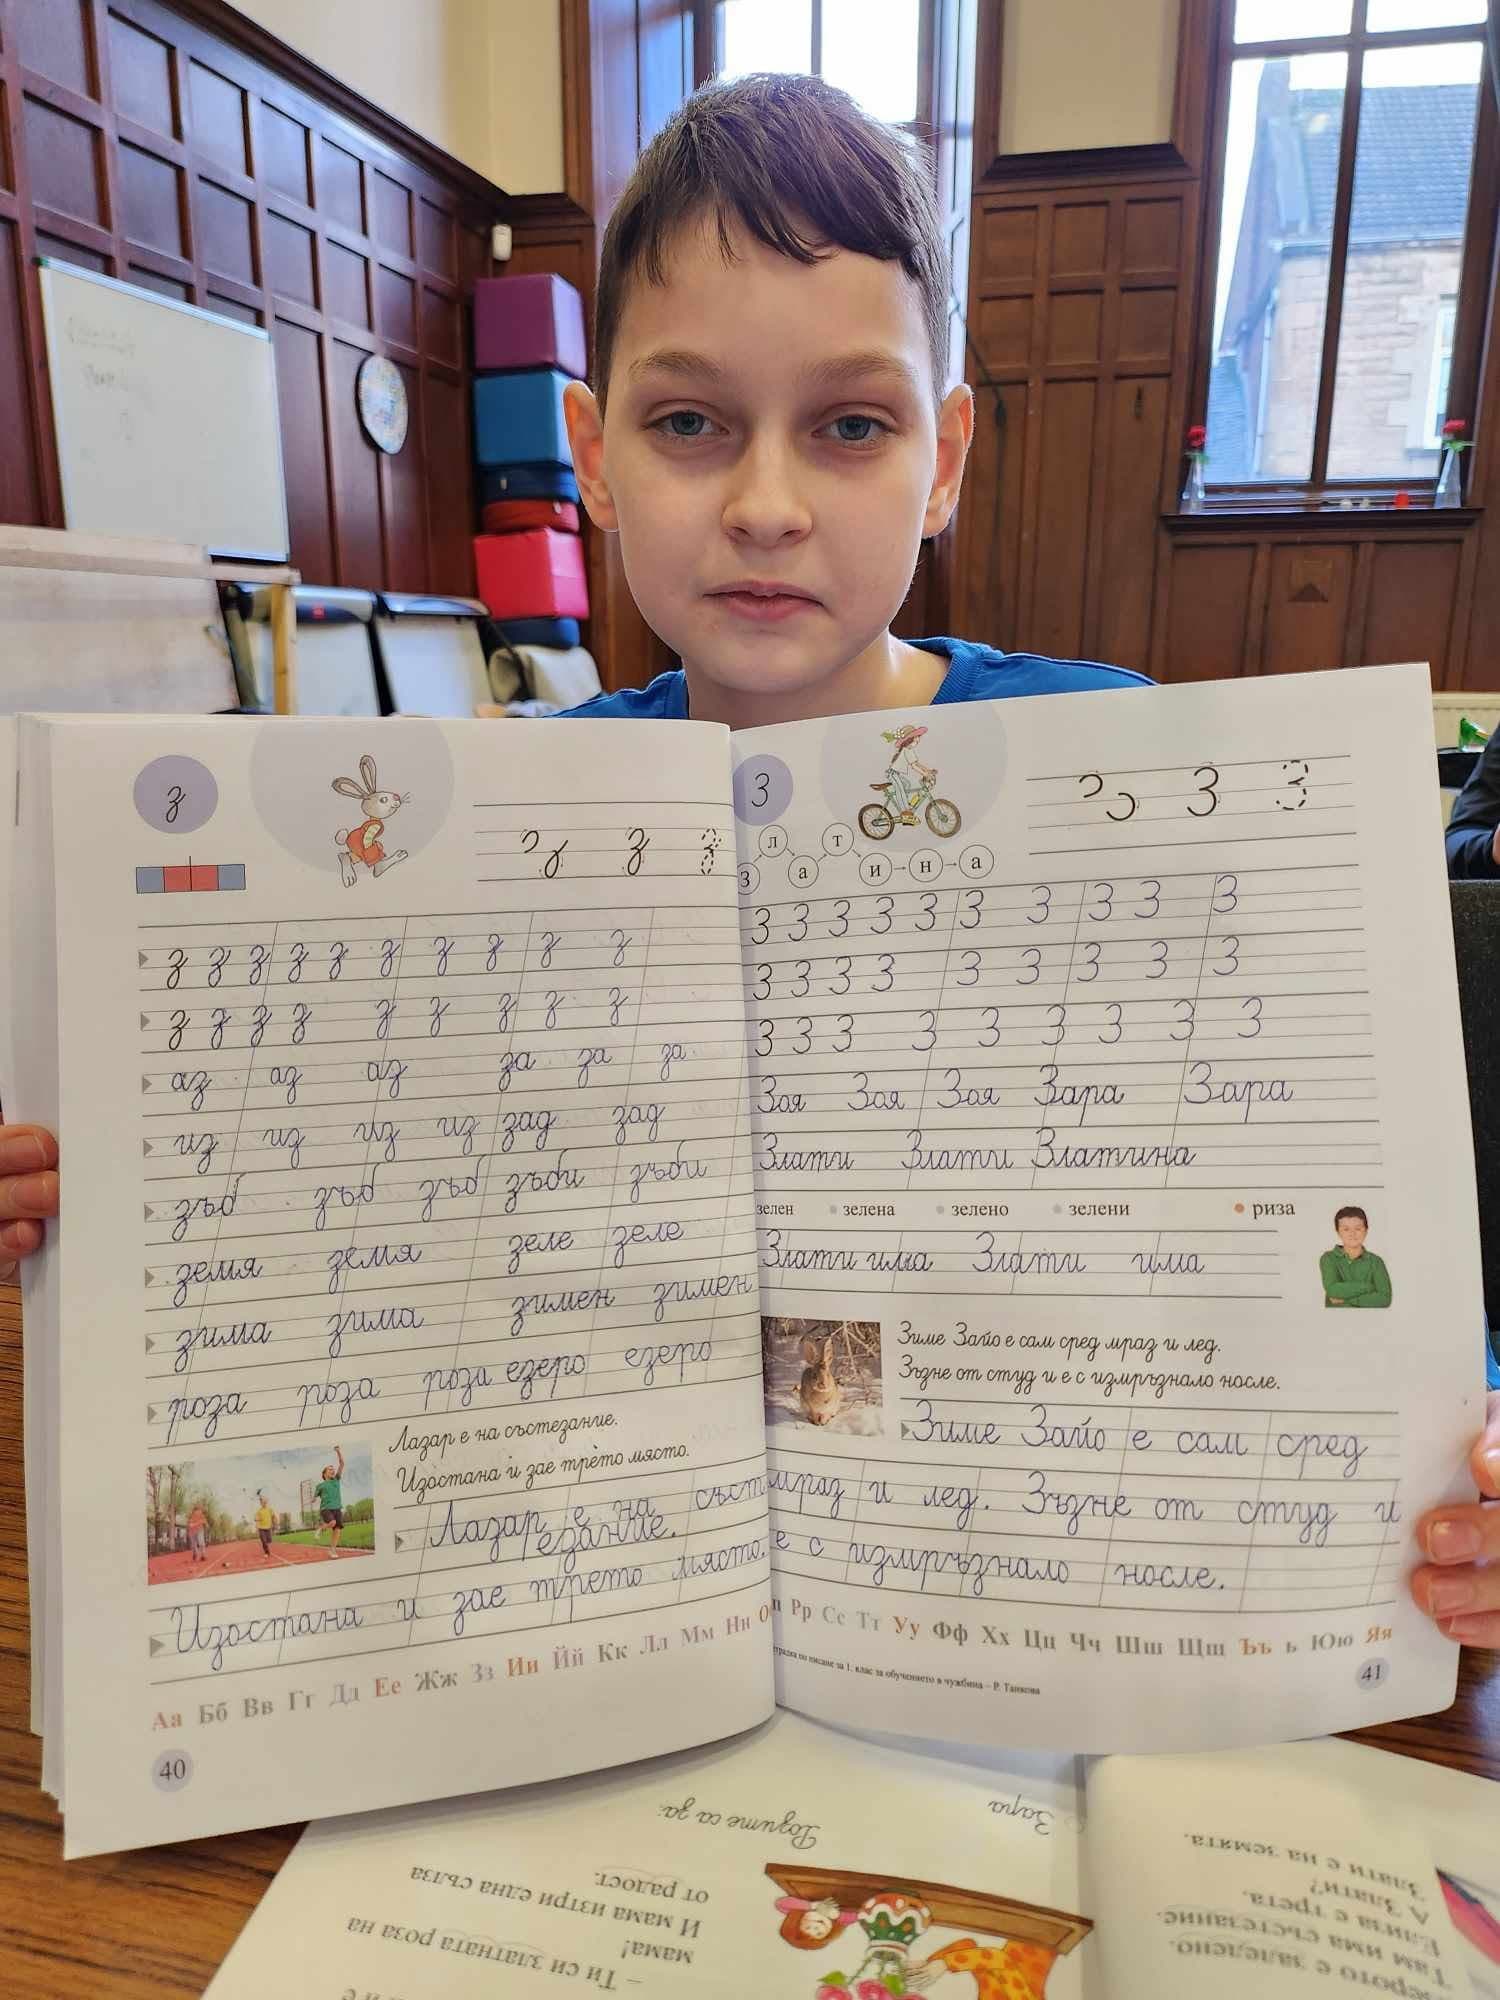 з
з з з
з з з з з з з з з з
з з з з з з з з з
аз аз аз за за за
из из из из зад зад
зъб зъб зъб зъби зъби
земя земя зеле зеле
зима зима зимен зимен
роза роза роза езеро езеро
Лазар е на състезание.
Изостана и зае трето място.
Лазар е на състезание.
Изостана и зае трето място.
Аа Бб Вв Гг Дд Ее Жж Зз Ии Йй Кк Лл Мм Нн О
40
З
З З З
з л а т и н а
З З З З З З З З З З
З З З З З З З З З
З З З З З З З З З
Зоя Зоя Зоя Зара Зара
Злати Злати Златина
зелен зелена зелено зелени риза
Злати има Злати има
Зиме Зайо е сам сред мраз и лед.
Зъзне от студ и е с измръзнало носле.
Зиме Зайо е сам сред
мраз и лед. Зъзне от студ и
е с измръзнало носле.
п Рр Сс Тт Уу Фф Хх Цц Чч Шш Щщ Ъъ ь Юю Яя
тетрадка по писане за 1. клас за обучението в чужбина – Р. Танкова
41
Зара
Розите са за:
– Ти си златната роза на
мама!
И мама изтри една сълза
от радост.
езерото е заледено.
Там има състезание.
Елиза е трета.
А Злати?
Злати е на земята.